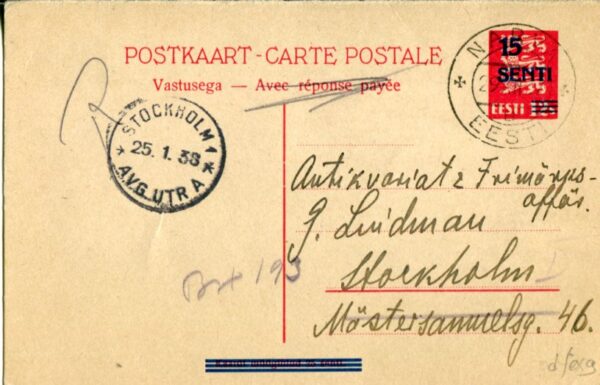 POSTKAART - CARTE POSTALE
Vastusega — Avec réponse payée
15
SENTI
EESTI
NAR
29
EESTI
STOCKHOLM 1
25. 1. 38
AVG. UTR A
Antikvariat & Frimärks-
affär.
G. Lindman
Stockholm
Mästersamuelsg. 46.
Box 193